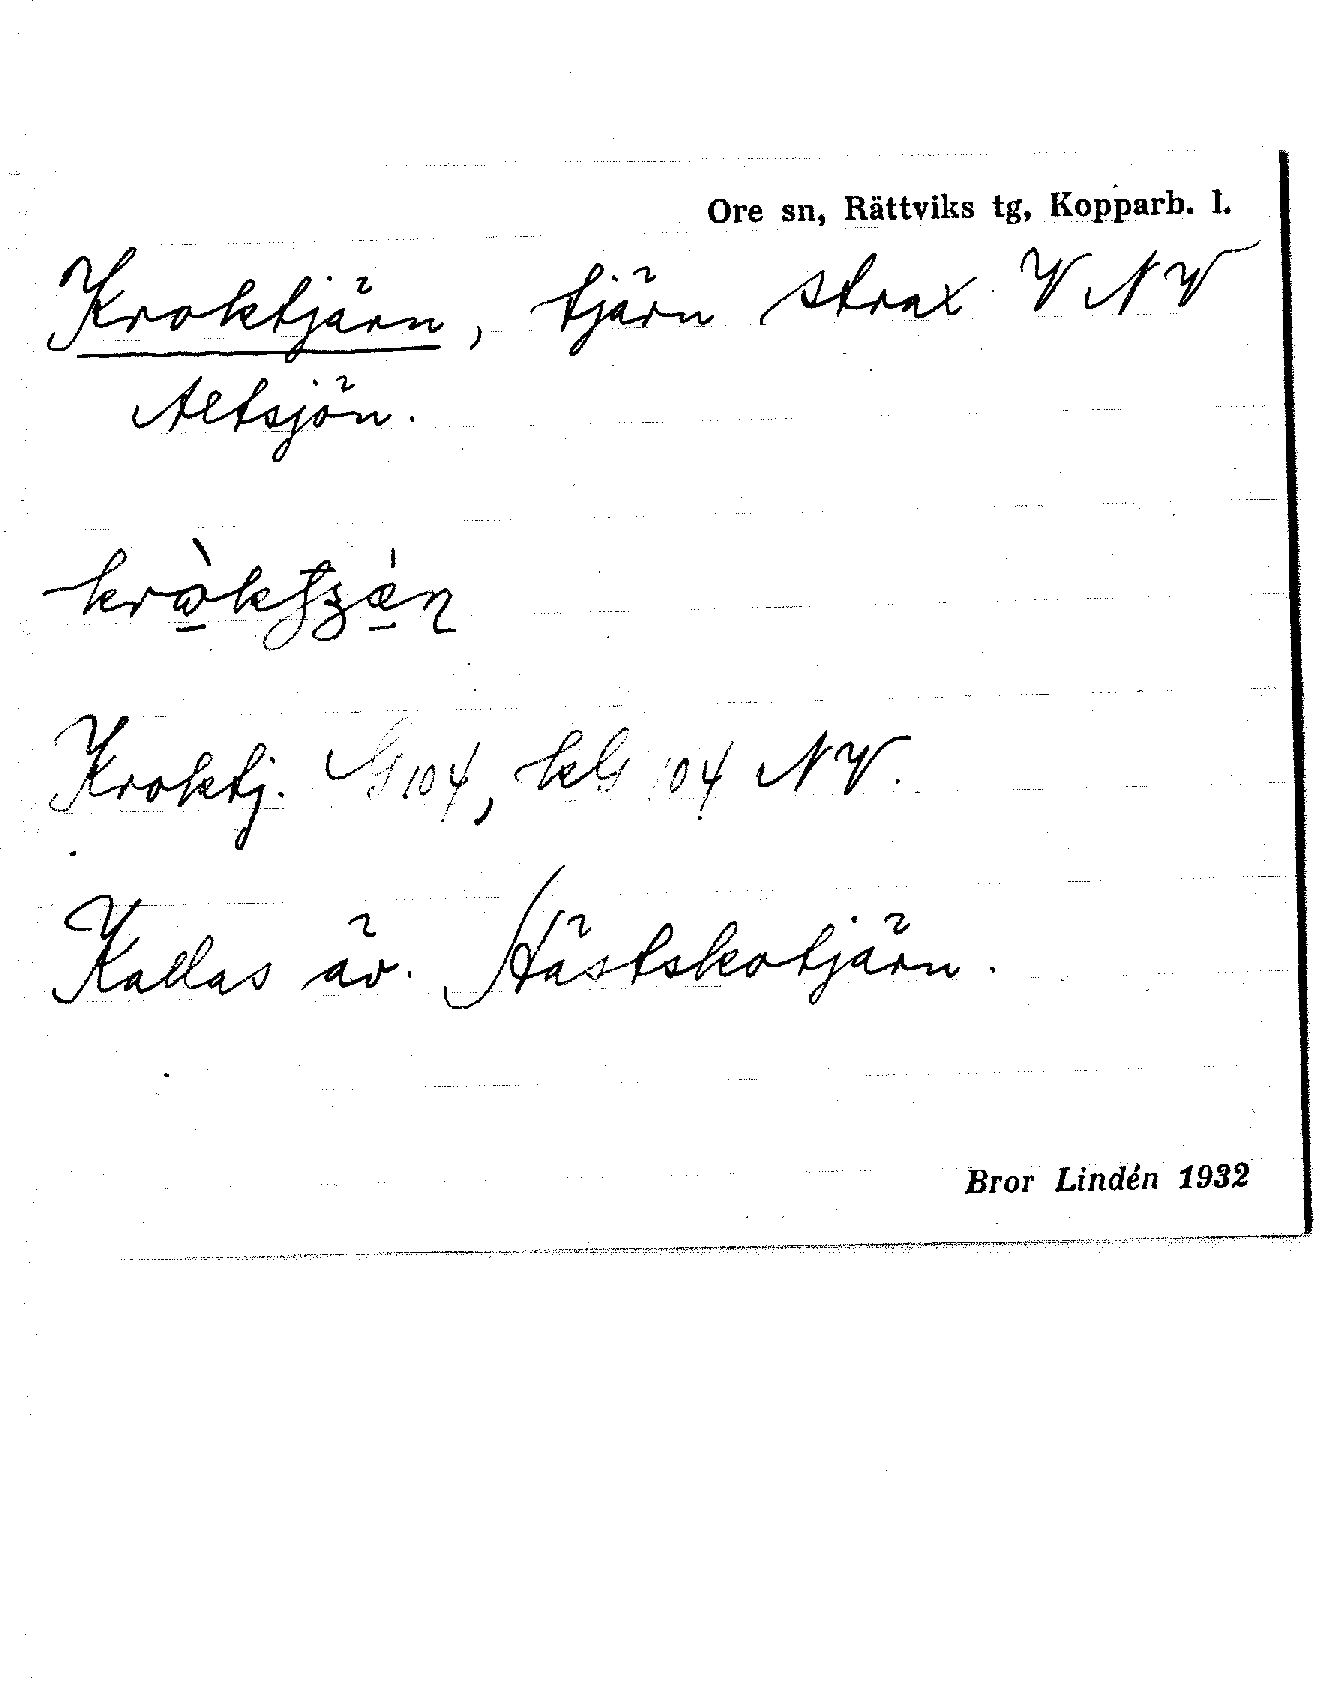 Ore sn, Rättviks tg, Kopparb. l.
Kroktjärn, tjärn strax VNV
Altsjön.
Kroktj. G104, kG 104 NV.
Kallas äv. Hästskotjärn.
Bror Lindén 1932